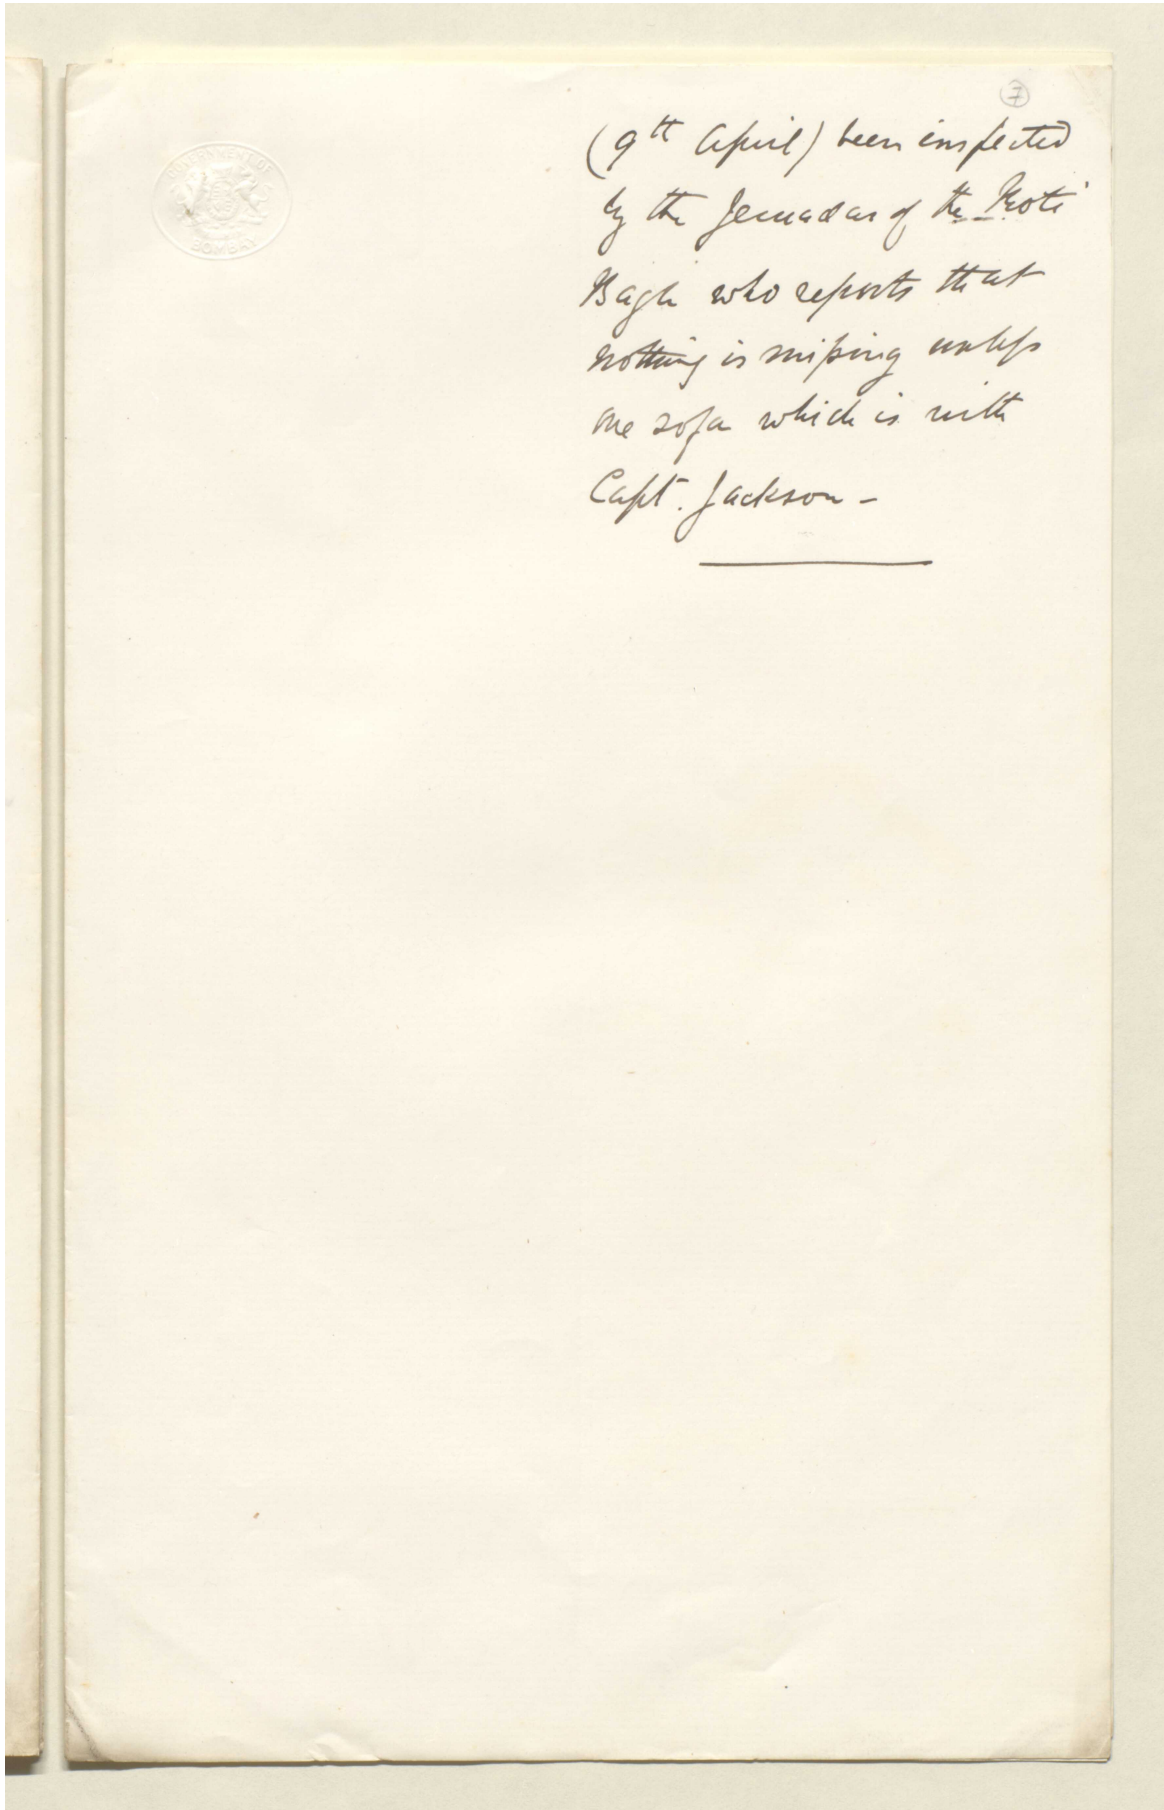 7
GOVERNMENT OF
BOMBAY
(9th April) been inspected
by the Jemadar of the Moti
Bagh who reports that
nothing is missing unless
one sofa which is with
Capt. Jackson -